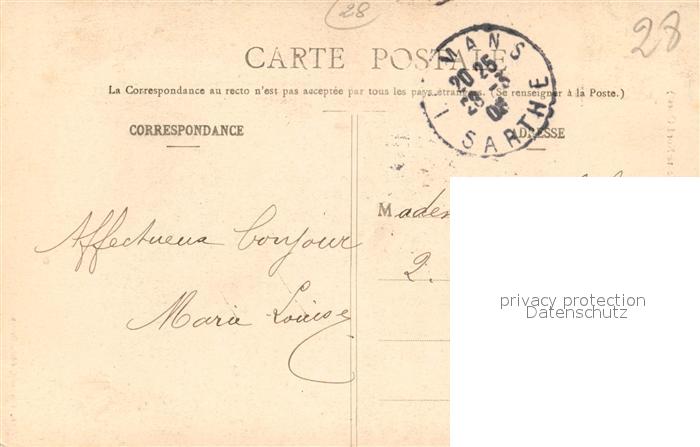 28
28
CARTE POSTALE
MANS
20 25
28
08
SARTHE
La Correspondance au recto n'est pas acceptée par tous les pays étrangers. (Se renseigner à la Poste.)
CORRESPONDANCE
ADRESSE
Affectueux bonjour
Marie Louise
Made
2.
privacy protection
Datenschutz